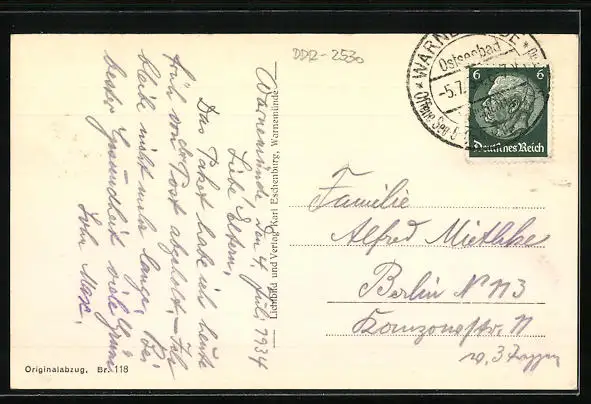 DDR-2530
WARNEMÜNDE
Ostseebad
-5.7.
6 6
Deutsches Reich
Warnemünde den 4. Juli 1934
Liebe Eltern,
Das Paket habe ich heute
früh von der Post abgeholt, – Ich
bleibe nicht mehr lange. Bei
bester Gesundheit viele Grüsse
Sohn Max.
Lichtbild und Verlag Karl Eschenburg, Warnemünde
Familie
Alfred Miethke
Berlin N 113
11
v. 3 Treppen
Originalabzug, Br. 118